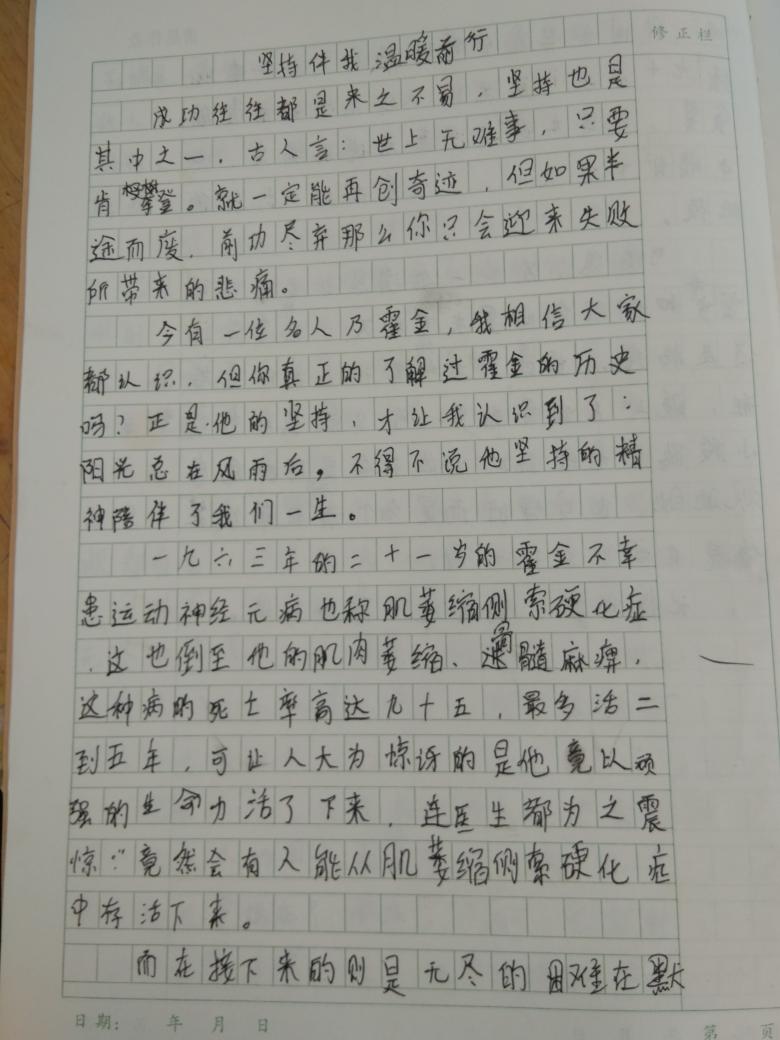 修正栏
坚持伴我温暖前行
成功往往都是来之不易，坚持也是
其中之一．古人言：世上无难事，只要
肯攀登。就一定能再创奇迹，但如果半
途而废．前功尽弃那么你只会迎来失败
所带来的悲痛。
今有一位名人乃霍金，我相信大家
都认识．但你真正的了解过霍金的历史
吗？正是他的坚持，才让我认识到了：
阳光总在风雨后，不得不说他坚持的精
神陪伴了我们一生。
一九六三年的二十一岁的霍金不幸
患运动神经元病也称肌萎缩侧索硬化症
．这也倒至他的肌肉萎缩、骨髓麻痹．
这种病的死士率高达九十五，最多活二
到五年，可让人大为惊讶的是他竟以顽
强的生命力活了下来．连医生都为之震
惊：“竟然会有人能从肌萎缩侧索硬化症
中存活下来。
而在接下来的则是无尽的困难在默
日期： 年 月 日
第 页